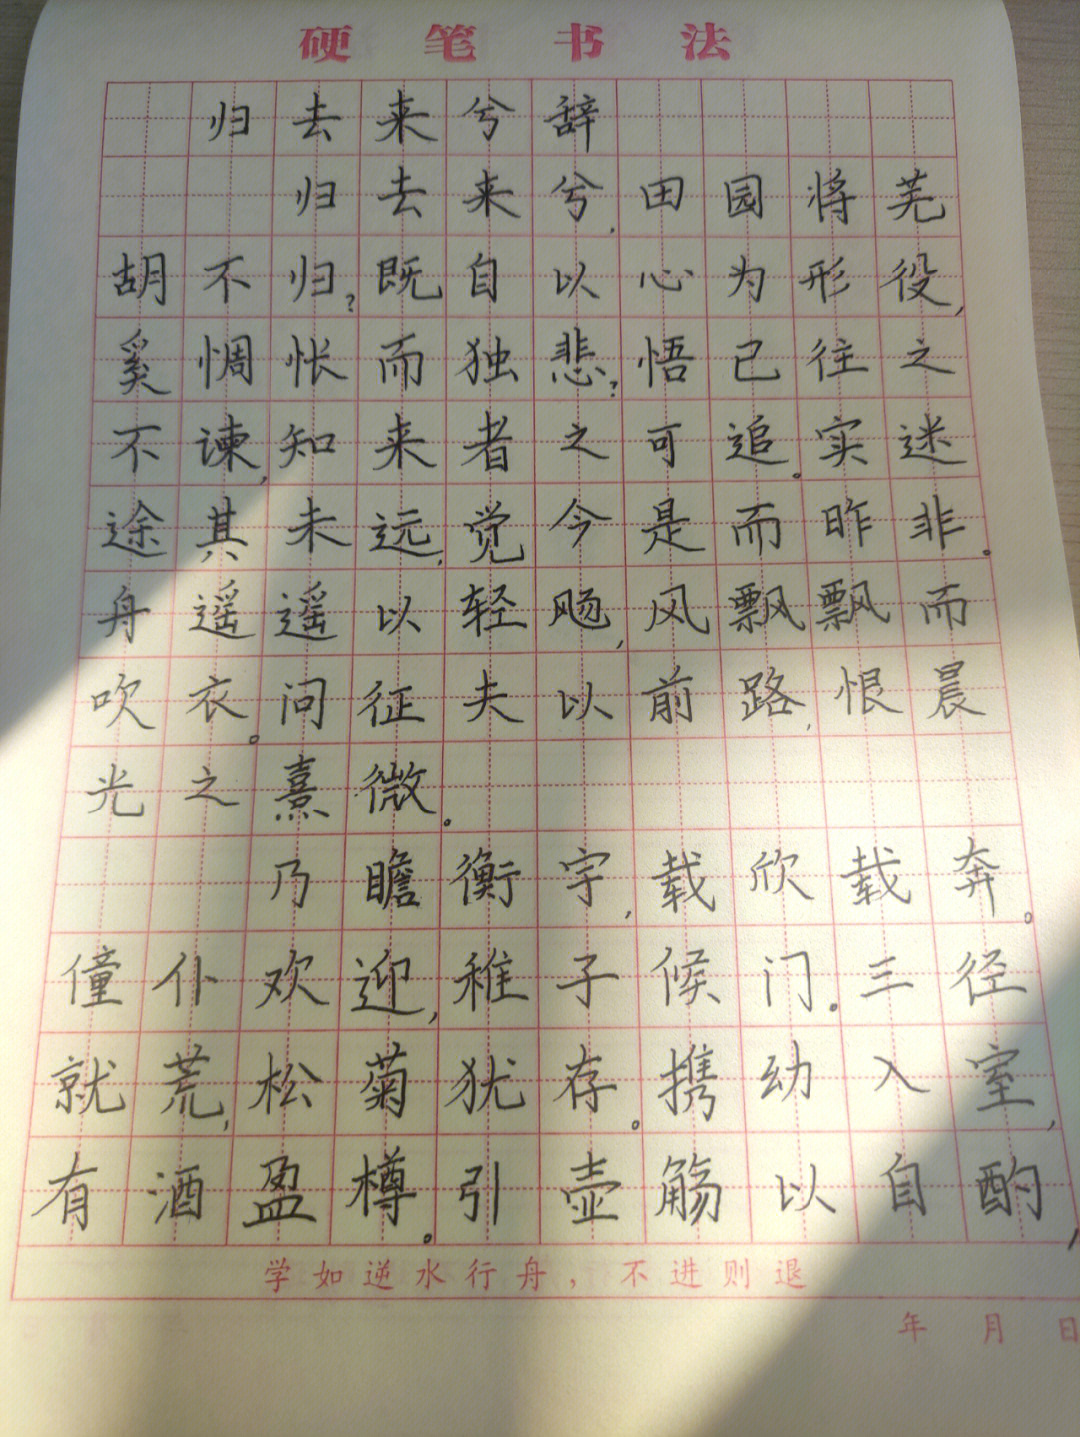 硬笔书法
归去来兮辞
归去来兮,田园将芜
胡不归?既自以心为形役,
奚惆怅而独悲?悟已往之
不谏,知来者之可追。实迷
途其未远,觉今是而昨非。
舟遥遥以轻飏,风飘飘而
吹衣。问征夫以前路,恨晨
光之熹微。
乃瞻衡宇,载欣载奔。
僮仆欢迎,稚子候门。三径
就荒,松菊犹存。携幼入室,
有酒盈樽。引壶觞以自酌,
学如逆水行舟,不进则退
年 月 日